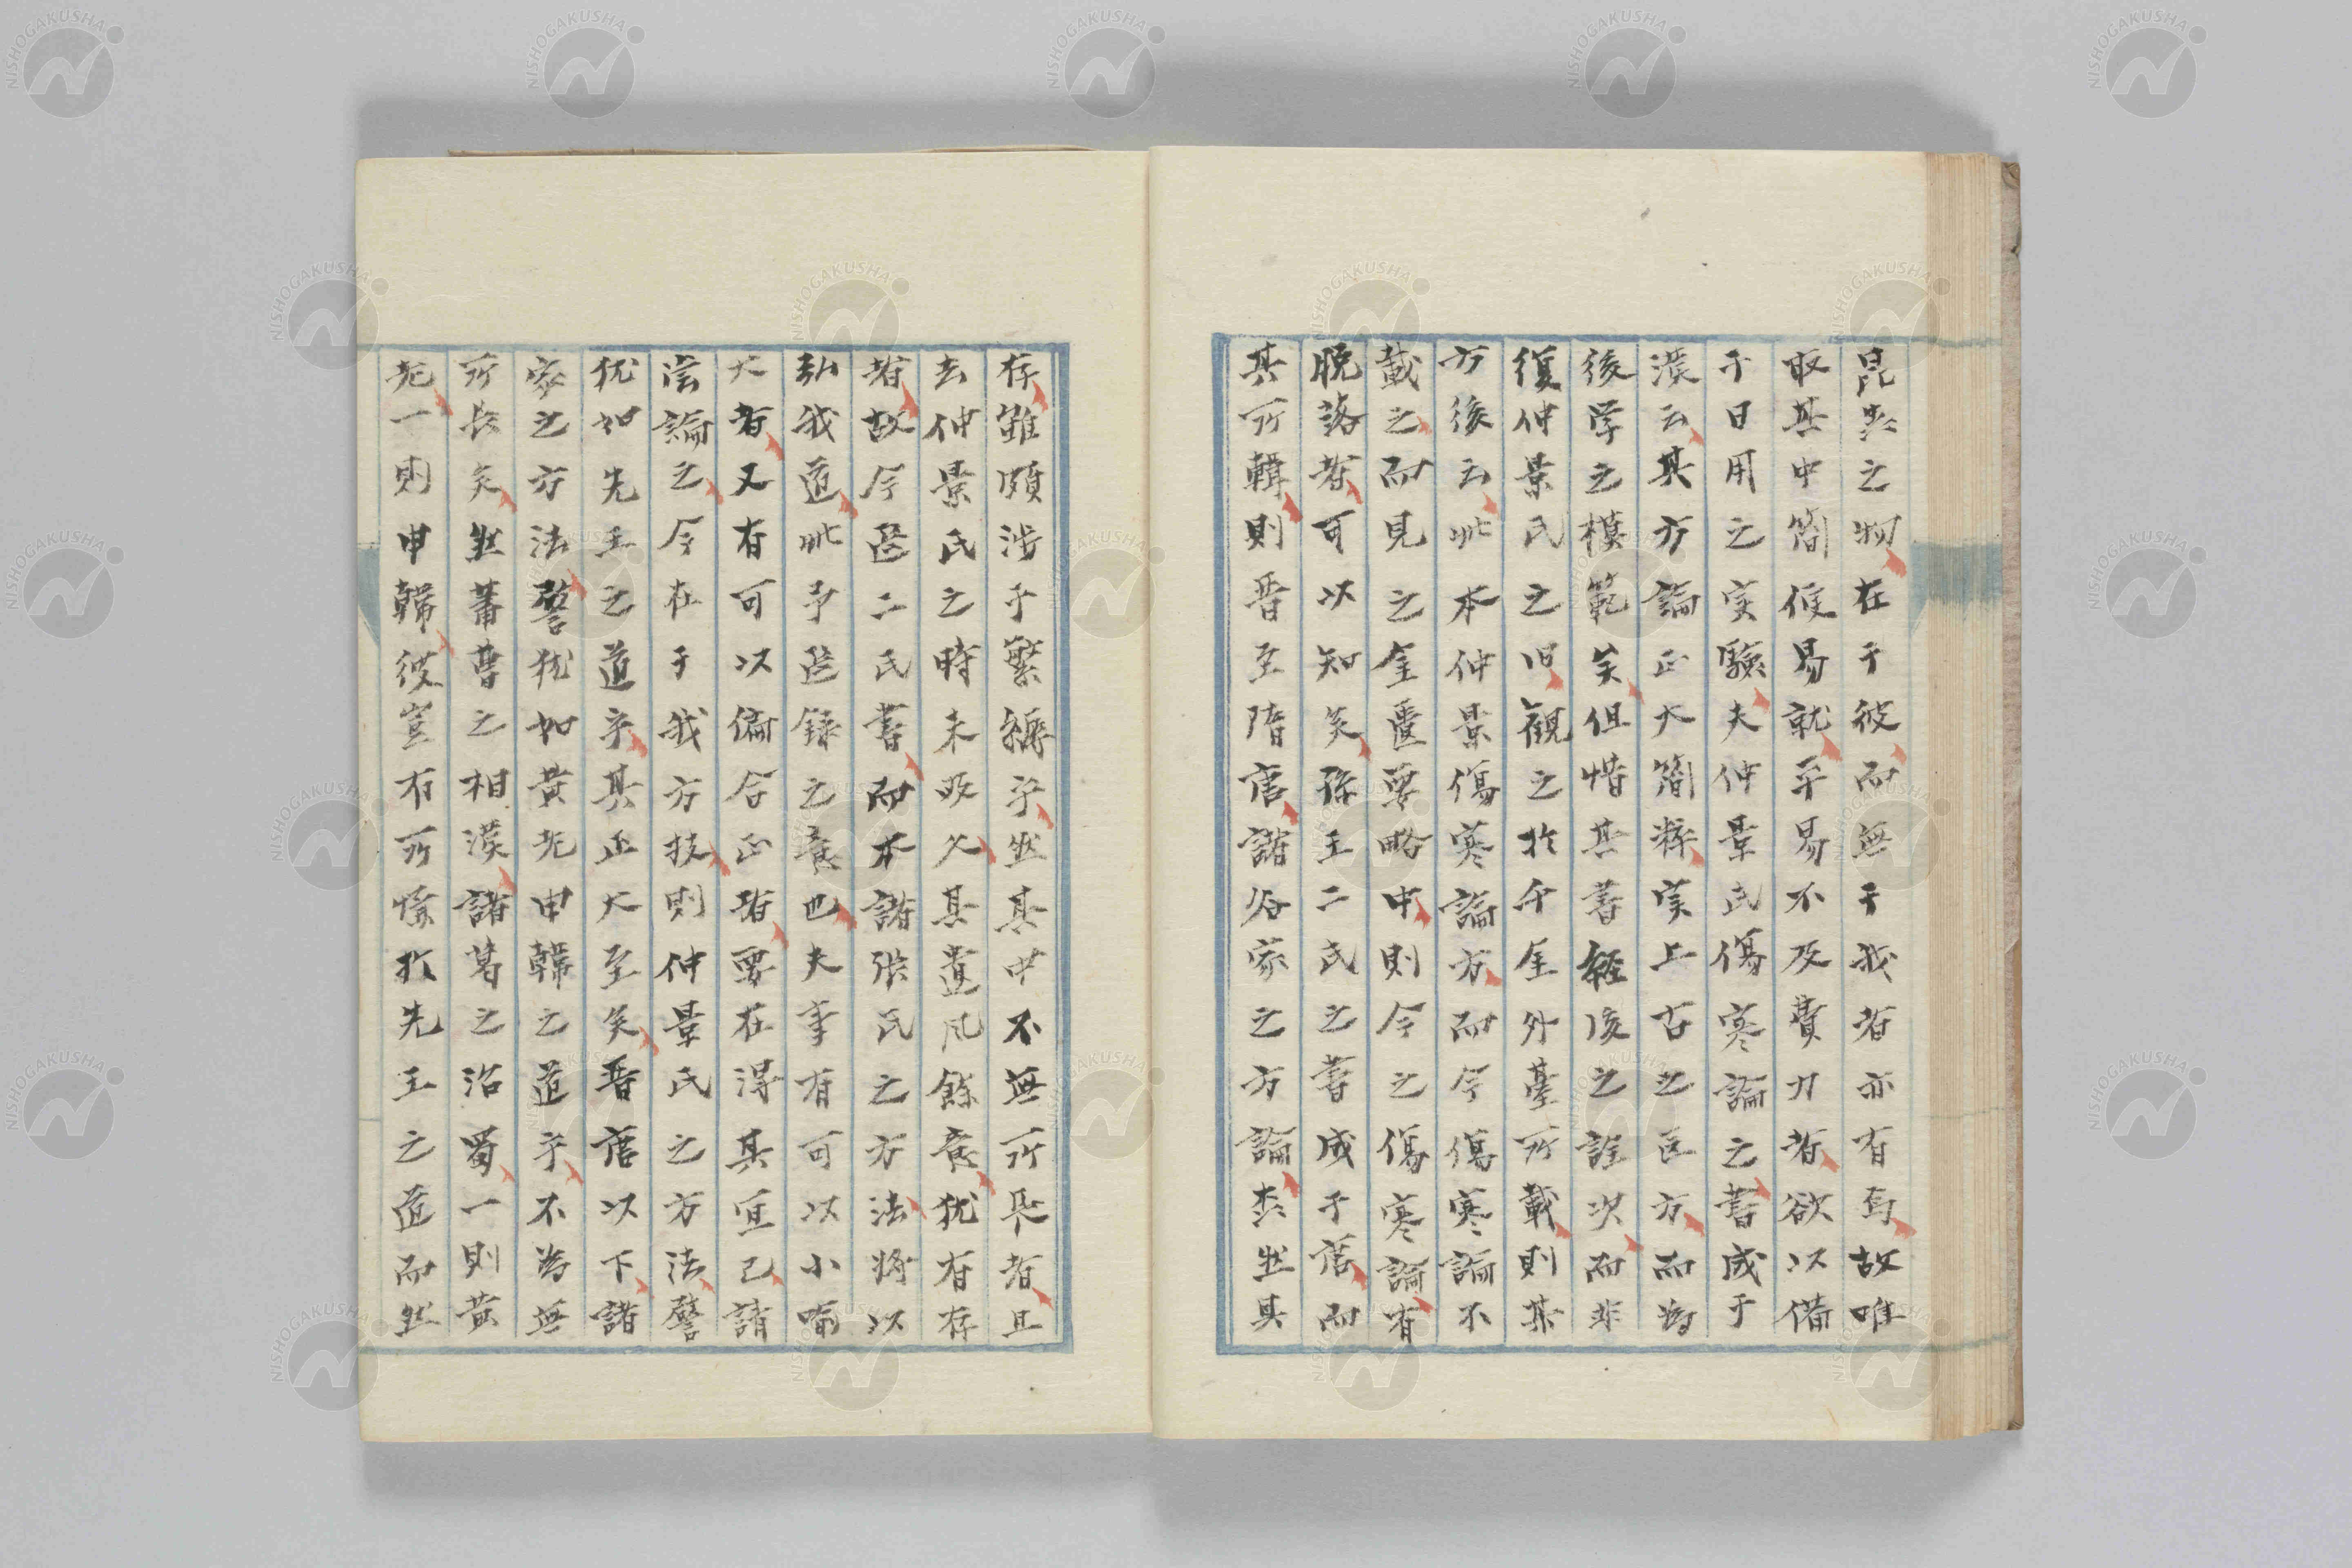 昆弟之物在于彼而無于我者亦有焉故唯
取其中簡便易就平易不及費力者欲以備
于日用之実驗夫仲景氏傷寒論之書成于
漢云其方論正大簡粋実上古之医方而為
後学之模範矣但惜其書経後之詮次而非
復仲景氏之旧観之於千金外臺所載則某
方後云此本仲景傷寒論方而今傷寒論不
載之而見之金匱要略中則今之傷寒論有
脱落者可以知矣孫王二氏之書成于唐而
其所輯則晋至隋唐諸名家之方論悉具
存雖頗渉于繁縟乎然其中不無所長者且
去仲景氏之時未及久其遺風餘意猶有存
者故今医二氏書而本諸張氏之方法将以
弘我道此予医録之意也夫事有可以小喩
大者又有可以偏合正者要在得其宜已請
嘗論之今在于我方技則仲景氏之方法譬
猶如先王之道乎其正大至矣晋唐以下諸
家之方法譬猶如黄老申韓之道乎不為無
所長矣然蕭曹之相漢諸葛之治蜀一則黄
老一則申韓彼豈有所慊於先王之道而然
NISHOGAKUSHA